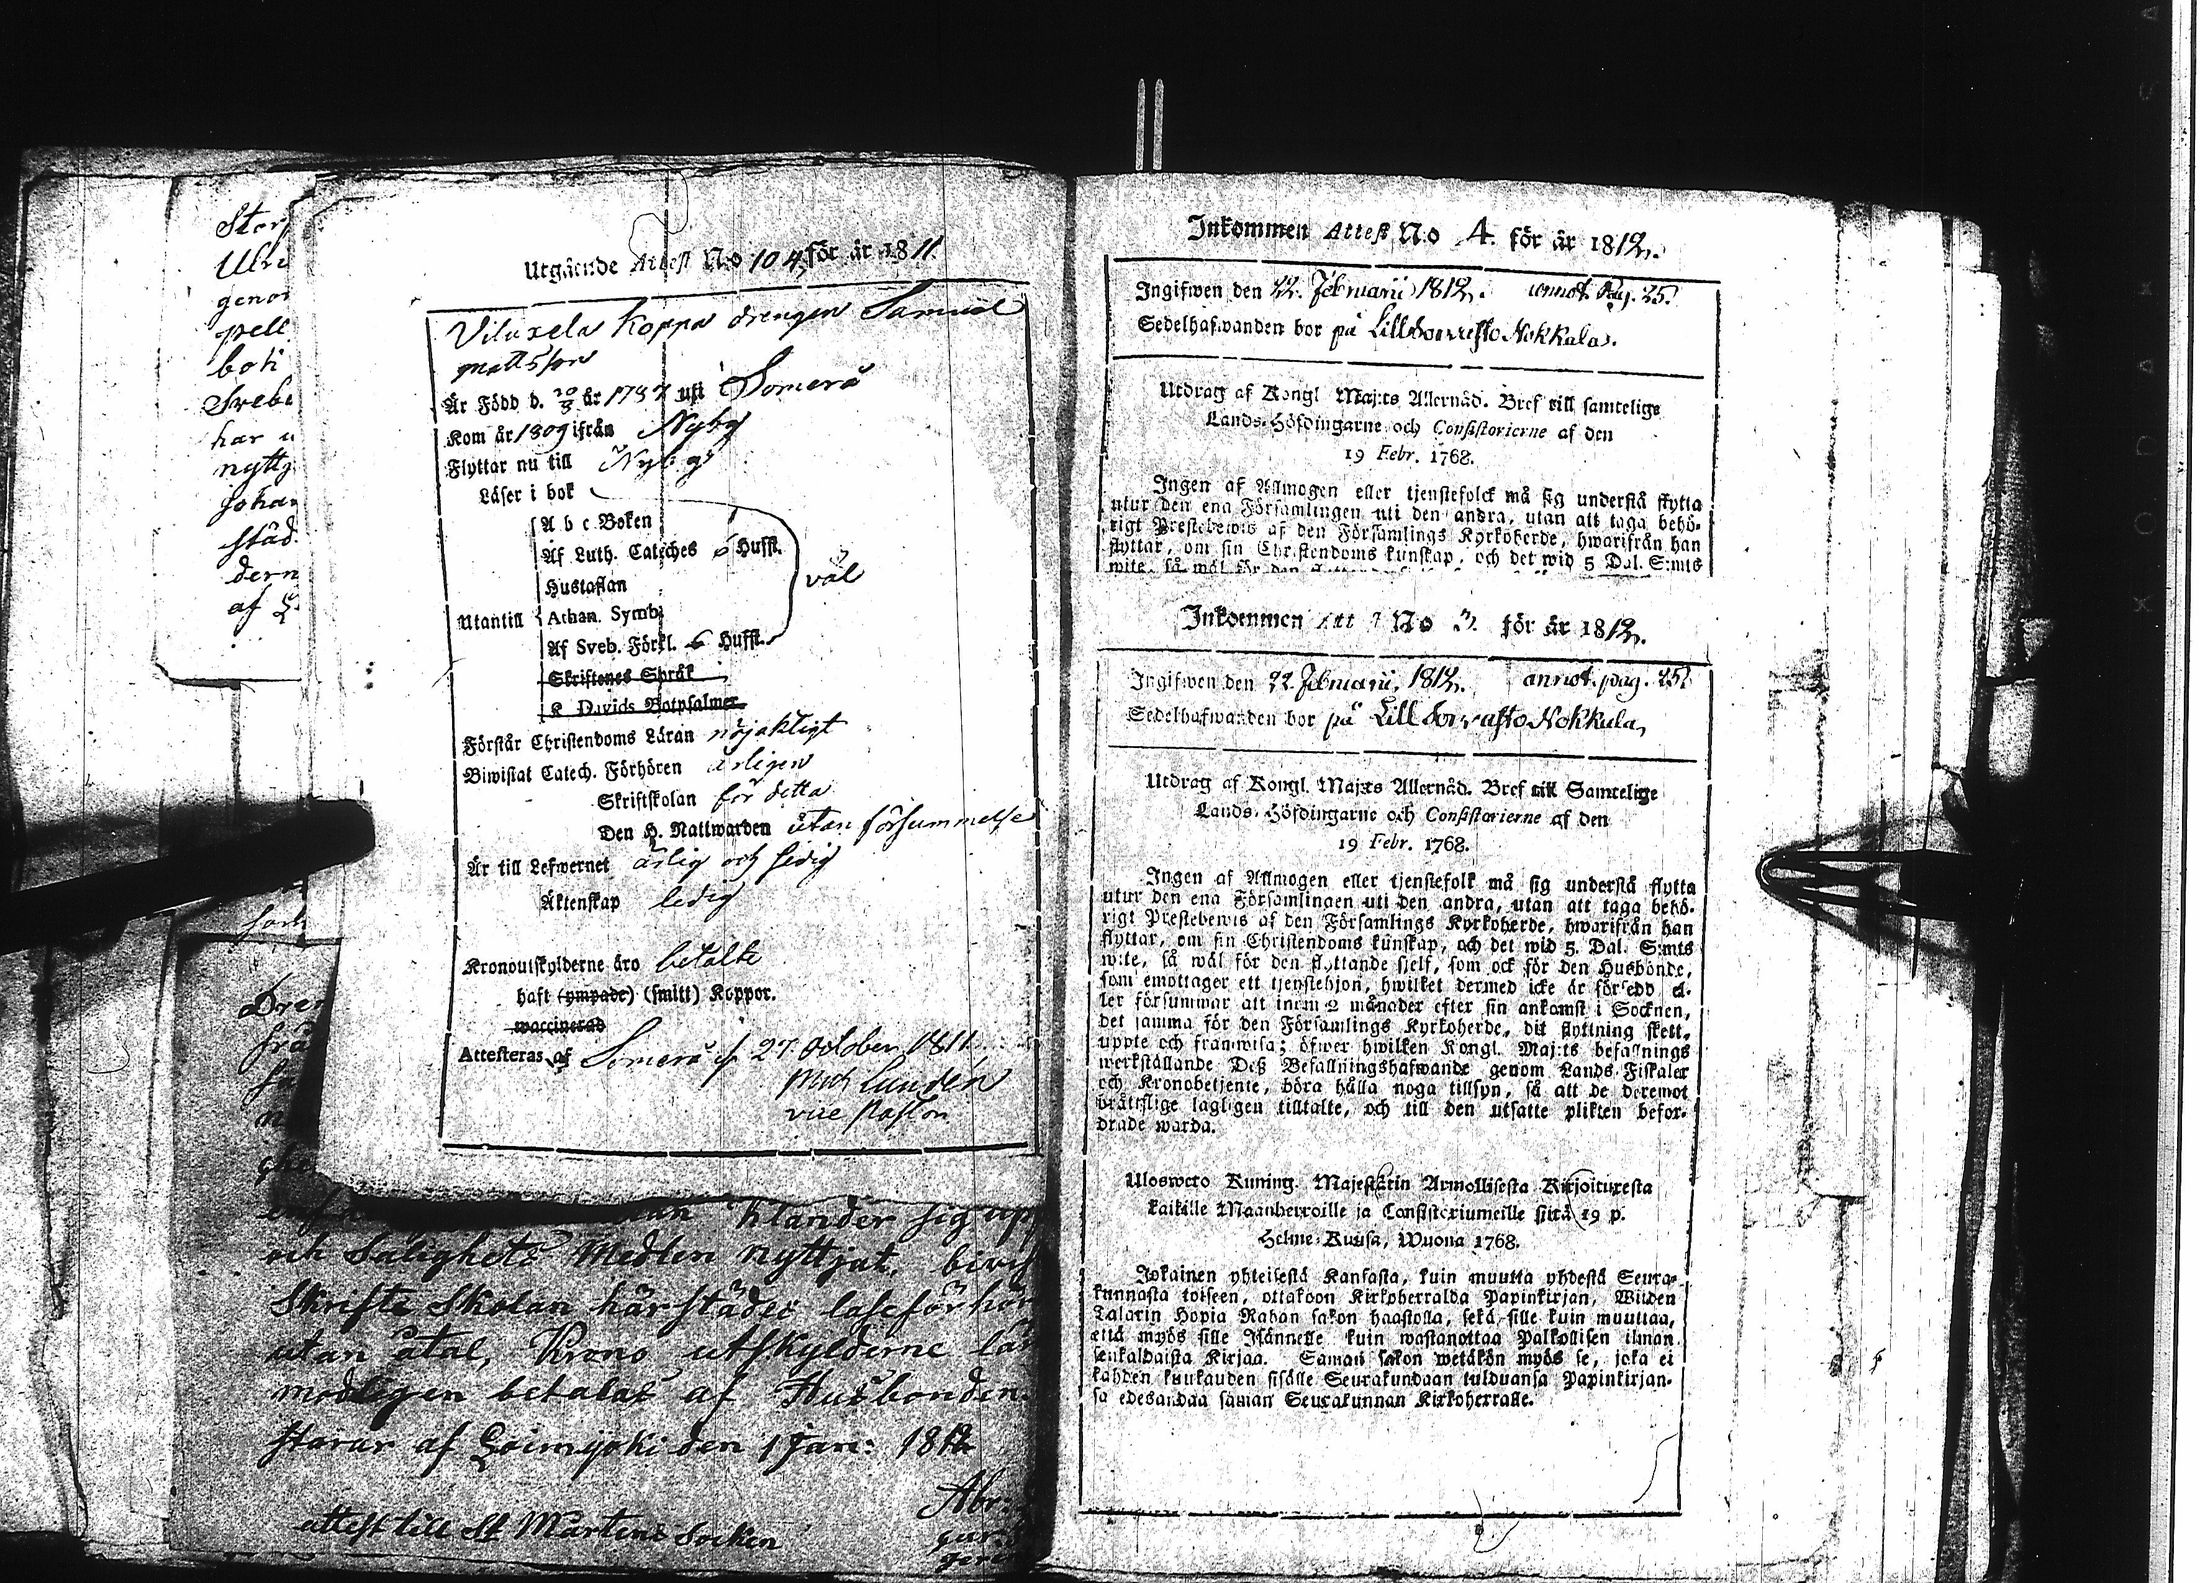 Storf
Ulri
genom
pell
boti
Sveb
har u
nyttj
Johan
städ
dern
af L
Utgående Attest N:o 104, för år 1811.
Viluxela Koppa drengen Samuel
Mattsson
Är Född d. 20/3 år 1787 uti Somero
Kom år 1809 ifrån Nyby
Flyttar nu till Nyby
Läser i bok
A b c Boken
Af Luth. Cateches 6 Hufst.
Hustaflan
väl
Utantill Athan. Symb.
Af Sveb. Förkl. 6 Hufst.
Skriftenes Språk
K Davids Botpsalmer
Förstår Christendoms Läran nöjaktigt
Biwistat Catech. Förhören årligen
Skriftskolan för detta
Den H. Nattwarden utan försummelse
Är till Lefwernet ärlig och sedig
Äktenskap ledig
Kronoutskylderne äro betalte
haft (ympade) (smitt) Koppor.
waccinerad
Attesteras af Somero d. 27 October 1811.
Mich Lunden
vice Pastor
Dren
frå
klander sig upp
och Salighets Medlen nyttjat,
Skrifte Skolan härstädes läseförhör
utan åtal, Krono utskylderne
betalas af Husbonden
af Loimijoki den 1 Jan: 1812
Abr:
attest till St Mårtens Socken
Inkommen Attest N:o 4. för år 1812.
Ingifwen den 22. Februarii 1812. annot. Pag. 25.
Sedelhafwanden bor på Lilldorrasto Nokkala.
Utdrag af Kongl Maj:ts Allernåd. Bref till samtelige
Lands-Höfdingarne och Consistorierne af den
19 Febr. 1768.
Ingen af Allmogen eller tjenstefolck må sig understå flytta
utur den ena Församlingen uti den andra, utan att taga behö-
rigt Prestebewis af den Församlings Kyrkoherde, hwarifrån han
flyttar, om sin Christendoms kunskap, och det wid 5 Dal. S:mts
wite, så wäl för den
Inkommen Att N:o 3. för år 1812.
Ingifwen den 22 Februarii, 1812. annot. pag. 25.
Sedelhafwanden bor på Lilldorrasto Nokkala,
Utdrag af Kongl. Maj:ts Allernåd. Bref till Samtelige
Lands-Höfdingarne och Consistorierne af den
19 Febr. 1768.
Ingen af Allmogen eller tjenstefolk må sig understå flytta
utur den ena Församlingen uti den andra, utan att taga behö-
rigt Prestebewis af den Församlings Kyrkoherde, hwarifrån han
flyttar, om sin Christendoms kunskap, och det wid 5. Dal. S:mts
wite, så wäl för den flyttande sielf, som ock för den Husbonde,
som emottager ett tjenstehjon, hwilket dermed icke är försedd el-
ler försummar att inom 2 månader efter sin ankomst i Socknen,
det samma för den Församlings Kyrkoherde, dit flyttning skett,
uppte och framwisa; öfwer hwilken Kongl. Maj:ts befallnings
werkställande Deß Befallningshafwande genom Lands Fiskaler
och Kronobetjente, böra hålla noga tillsyn, så att de deremot
brättslige lagligen tilltalte, och till den utsatte plikten befor-
drade warda.
Ulosweto Kuning. Majestätin Armollisesta Kirjoituxesta
kaikille Maanherroille ja Consistoriumeille siitä 19 p.
Helme-Kuusa, Wuona 1768.
Jokainen yhteisestä Kansasta, kuin muutta yhdestä Seura-
kunnasta toiseen, ottakoon Kirkoherralda Papinkirjan, Wiiden
Talarin Hopia Rahan sakon haastolla, sekä sille kuin muuttaa,
että myös sille Isännelle kuin wastanottaa Palkollisen ilman
senkaldaista Kirjaa. Saman sakon wetäkön myös se, joka ei
kahden kuukauden sisälle Seurakundaan tulduansa Papinkirjan-
sa edesandaa saman Seurakunnan Kirkoherralle.